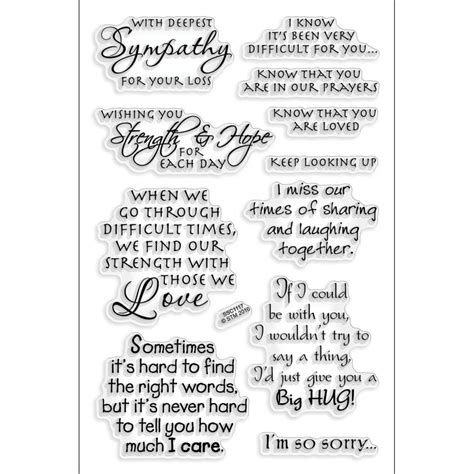 WITH DEEPEST
Sympathy
FOR YOUR LOSS
I KNOW
IT'S BEEN VERY
DIFFICULT FOR YOU...
KNOW THAT YOU
ARE IN OUR PRAYERS
WISHING YOU
Strength & Hope
FOR
EACH DAY
KNOW THAT YOU
ARE LOVED
KEEP LOOKING UP
WHEN WE
GO THROUGH
DIFFICULT TIMES,
WE FIND OUR
STRENGTH WITH
THOSE WE
Love
I miss our
times of sharing
and laughing
together.
SSC1117
© STM 2010
If I could
be with you,
I wouldn't try to
say a thing,
I'd just give you a
Big HUG!
Sometimes
it's hard to find
the right words,
but it's never hard
to tell you how
much I care.
I'm so sorry...